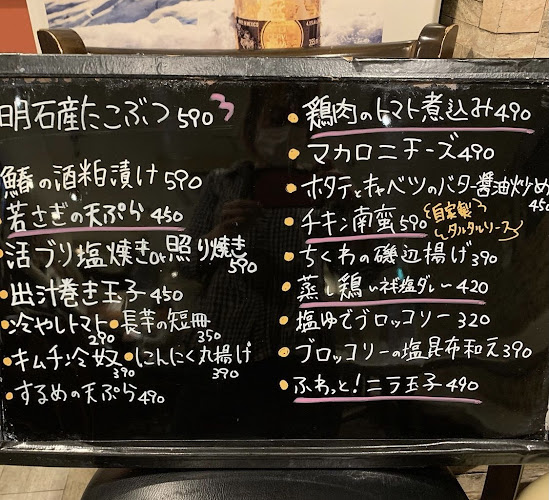 明石産たこぶつ590 3
鰆の酒粕漬け590
若さぎの天ぷら450
・活ブリ塩焼きor照り焼き590
・出汁巻き玉子450
・冷やしトマト290・長芋の短冊350
・キムチ冷奴390・にんにく丸揚げ390
・するめの天ぷら490
・鶏肉のトマト煮込み490
・マカロニチーズ490
・ホタテとキャベツのバター醤油炒め450
・チキン南蛮590(自家製タルタルソース)
・ちくわの磯辺揚げ390
・蒸し鶏 ネギ塩ダレー420
・塩ゆでブロッコリー320
・ブロッコリーの塩昆布和え390
・ふわっと!ニラ玉子490